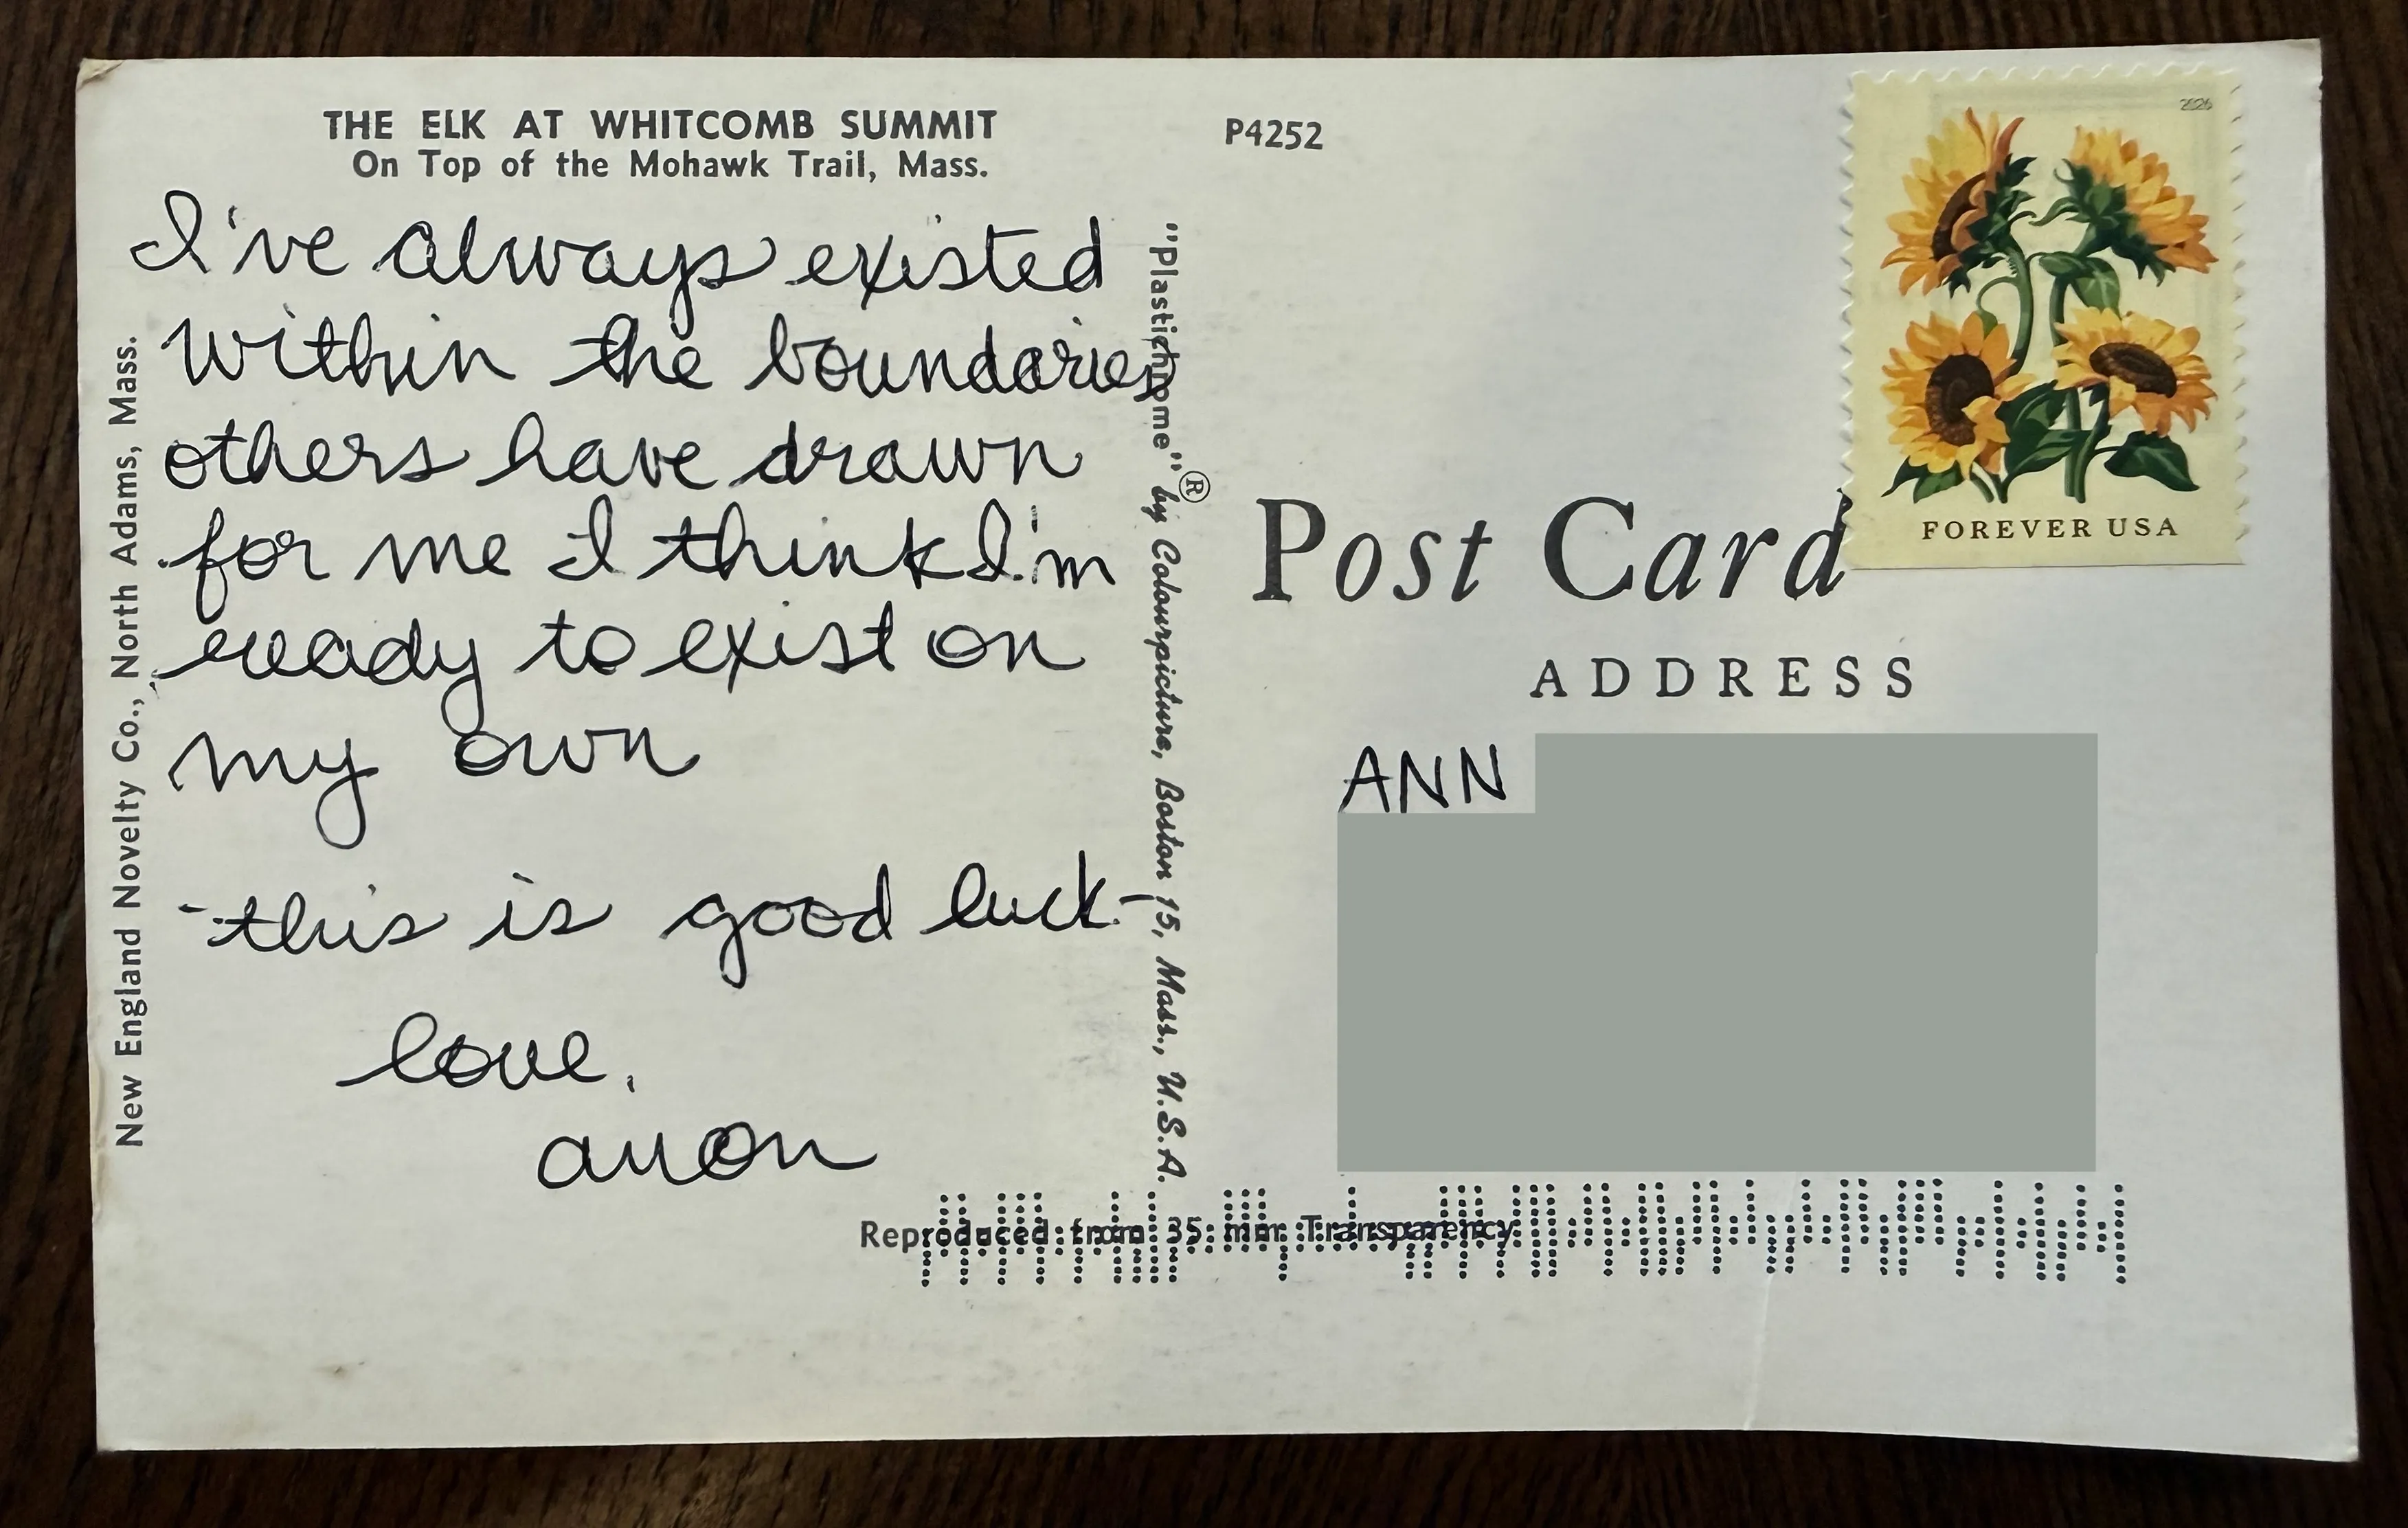 THE ELK AT WHITCOMB SUMMIT
On Top of the Mohawk Trail, Mass.
I've always existed
within the boundaries
others have drawn
for me I think I'm
ready to exist on
my own
-this is good luck-
love,
anon
New England Novelty Co., North Adams, Mass.
"Plastichrome"® by Colourpicture, Boston 15, Mass., U.S.A.
P4252
2026
FOREVER USA
Post Card
ADDRESS
ANN
Reproduced from 35 mm Transparency